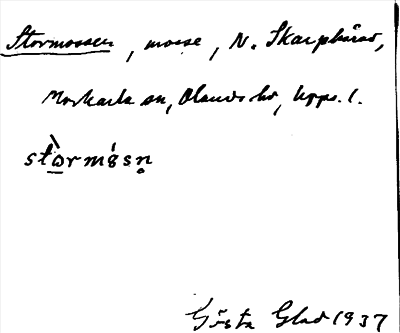 Stormossen, mosse, N. Skarpbårad,
Morkarla sn, Olands hd, Upps. l.
stòrmósn̥
Gösta Glad 1937